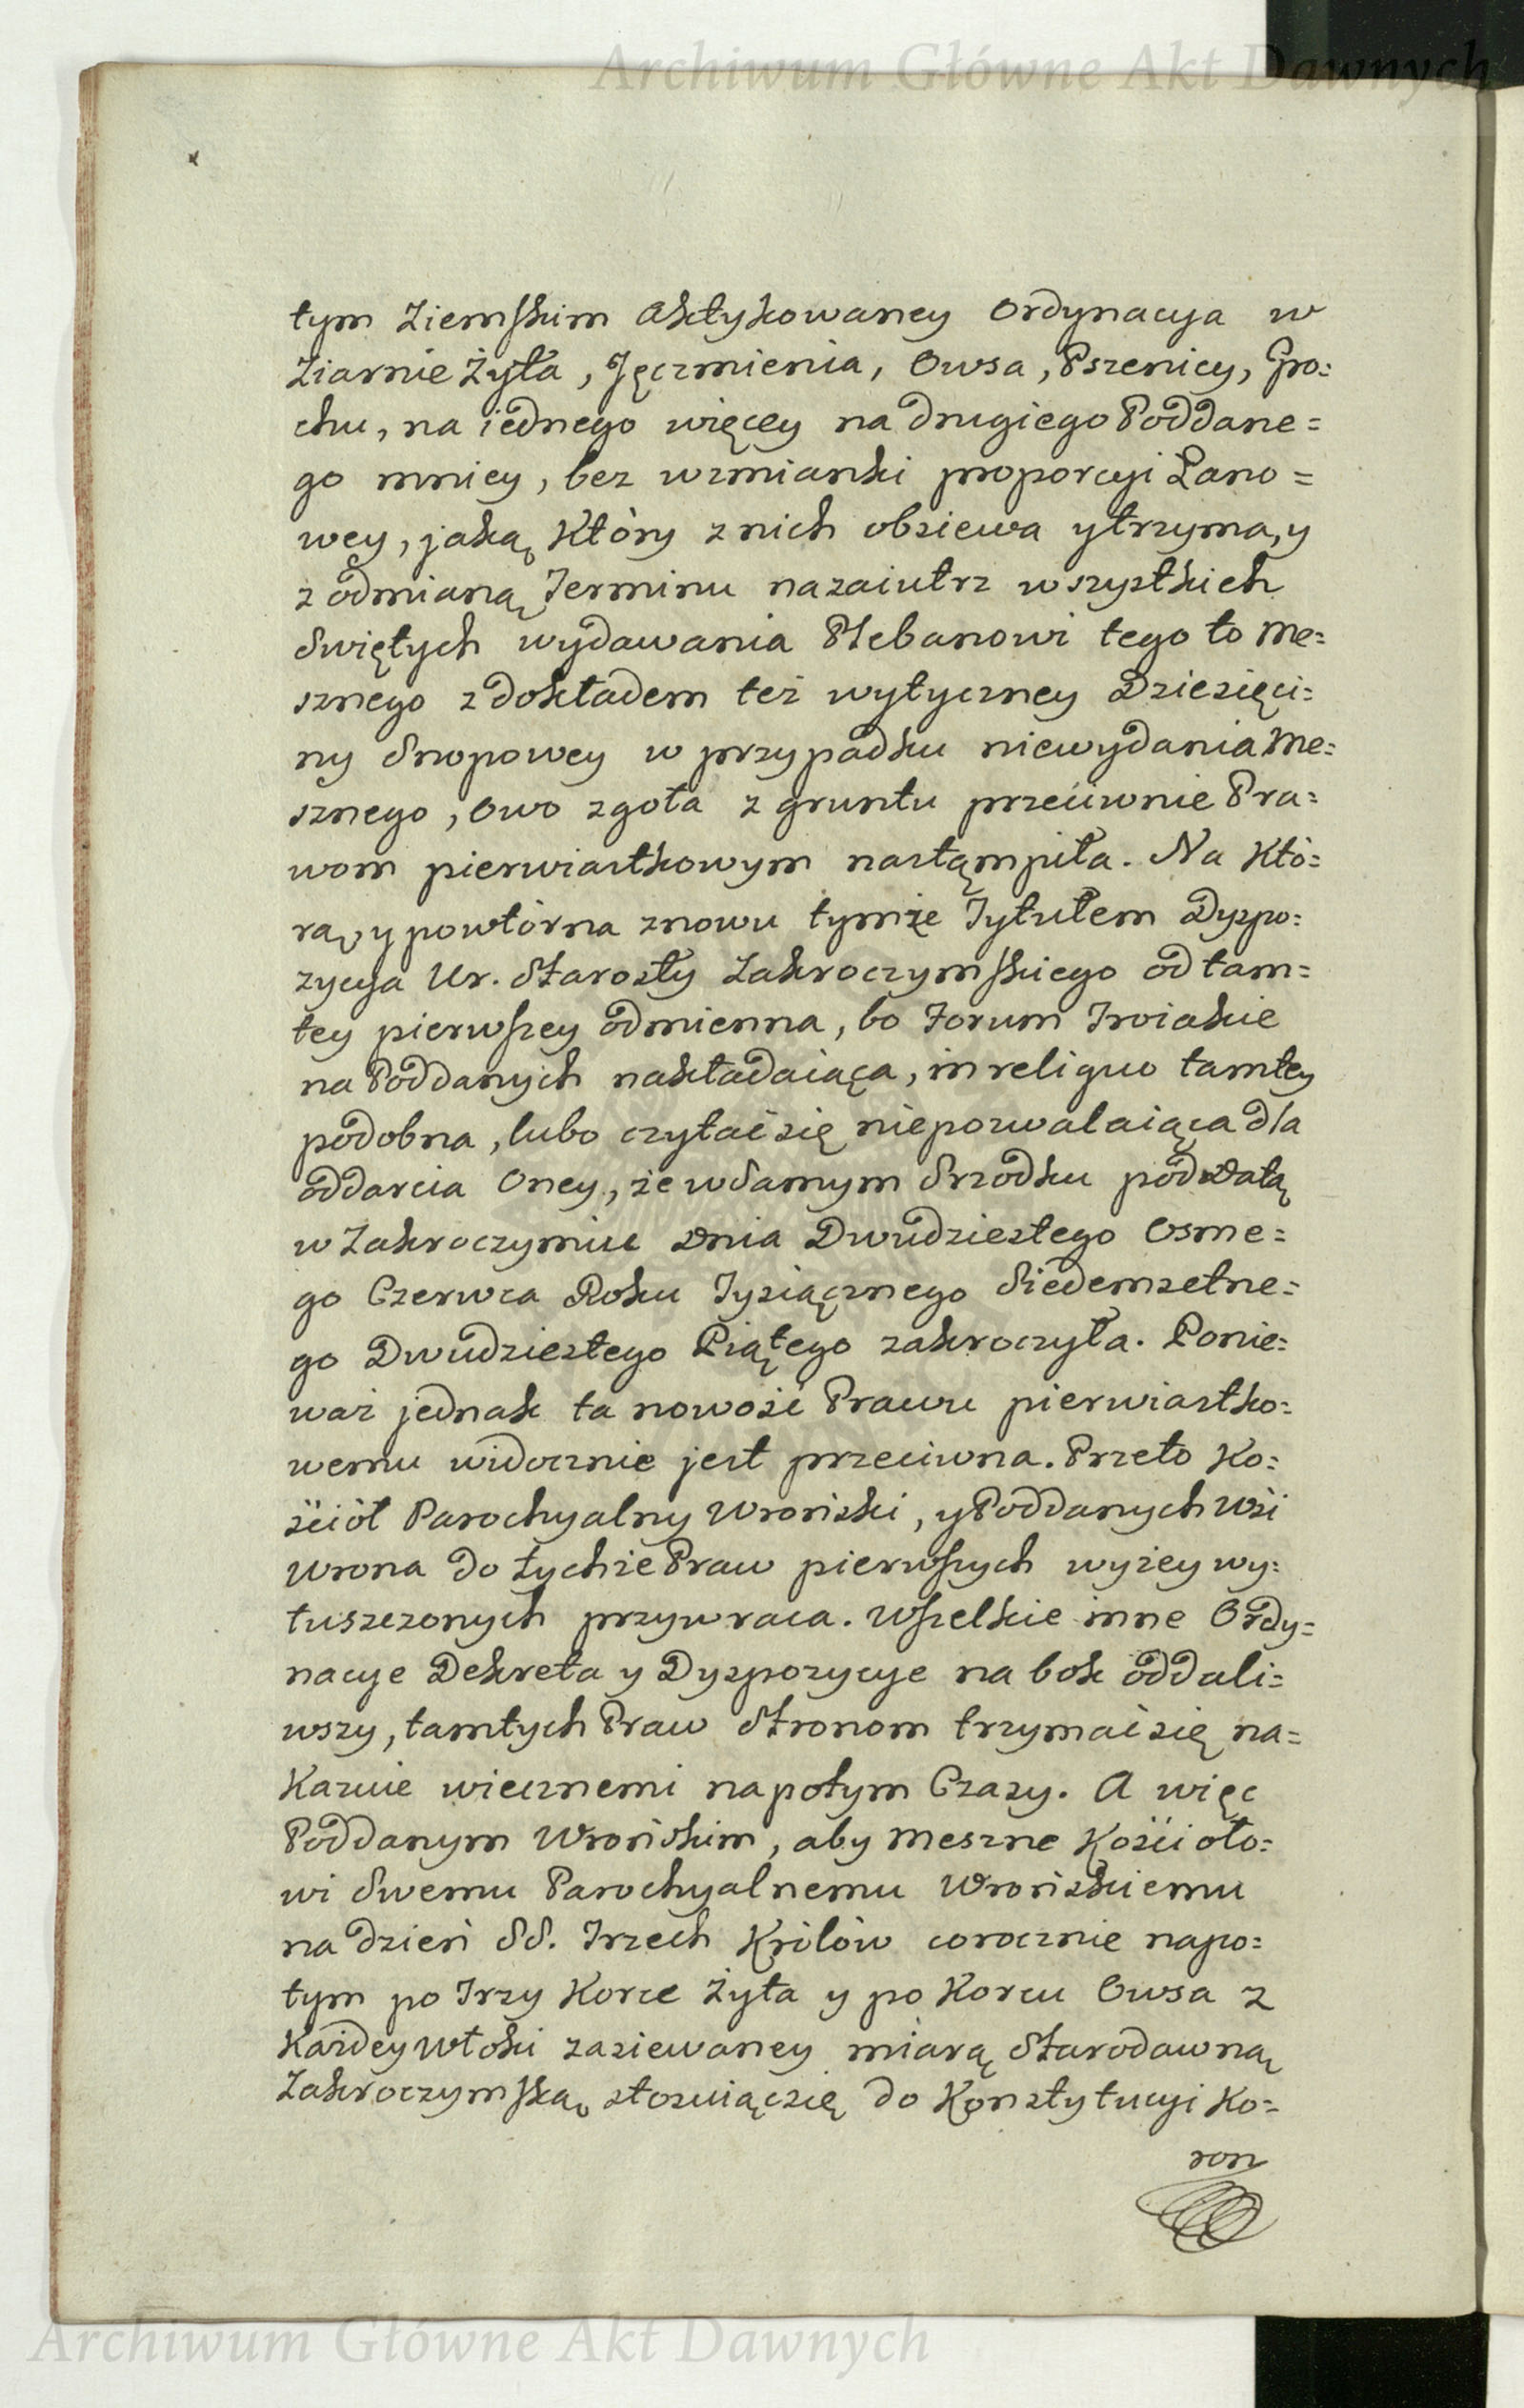 Archiwum Główne Akt Dawnych
tym Ziemskim Aktykowaney Ordynacya w
Ziarnie Żyta, Jęczmienia, Owsa, Pszenicy, Gro=
chu, na iednego więcey na drugiego Poddane=
go mniey, bez wzmianki proporcyi Łano=
wey, jaką Który z nich obsiewa y trzyma, y
z odmianą Terminu nazaiutrz wszystkich
Swiętych wydawania Plebanowi tego to Me=
sznego z dokładem też wytyczney Dziesięci=
ny Snopowey w przypadku niewydania Me=
sznego, Owo zgoła z gruntu przeciwnie Pra=
wom pierwiastkowym nastąmpiła. Na Któ=
rą, y powtórna znowu tymże Tytułem Dyspo=
zycya Ur. Starosty Zakroczymskiego od tam=
tey pierwszey odmienna, bo Forum Troiakie
na Poddanych nakładaiąca, in reliquo tamtey
podobna, lubo czytać się niepozwalaiąca dla
oddarcia Oney, że w Samym Srzodku pod Datą
w Zakroczymiu Dnia Dwudziestego Osme=
go Czerwca Roku Tysiącznego Siedemsetne=
go Dwudziestego Piątego zakroczyła. Ponie=
waż jednak ta nowość Prawu pierwiastko=
wemu widocznie jest przeciwna. Przeto Ko=
ściół Parochyalny Wroński, y Poddanych Wsi
Wrona do tychże Praw pierwszych wyżey wy=
łuszczonych przywraca. Wszelkie inne Ordy=
nacye Dekreta y Dyspozycye na bok oddali=
wszy, tamtych Praw Stronom trzymać się na=
Kazuie wiecznemi napotym Czasy. A więc
Poddanym Wrońskim, aby Meszne Kościoło=
wi Swemu Parochyalnemu Wrońskiemu
na dzień SS. Trzech Królów corocznie napo=
tym po Trzy Korce Żyta y po Korcu Owsa z
Każdey Włoki zasiewaney miarą Starodawną
Zakroczymską stosuiąc się do Konstytucyi Ko=
ron
Archiwum Główne Akt Dawnych